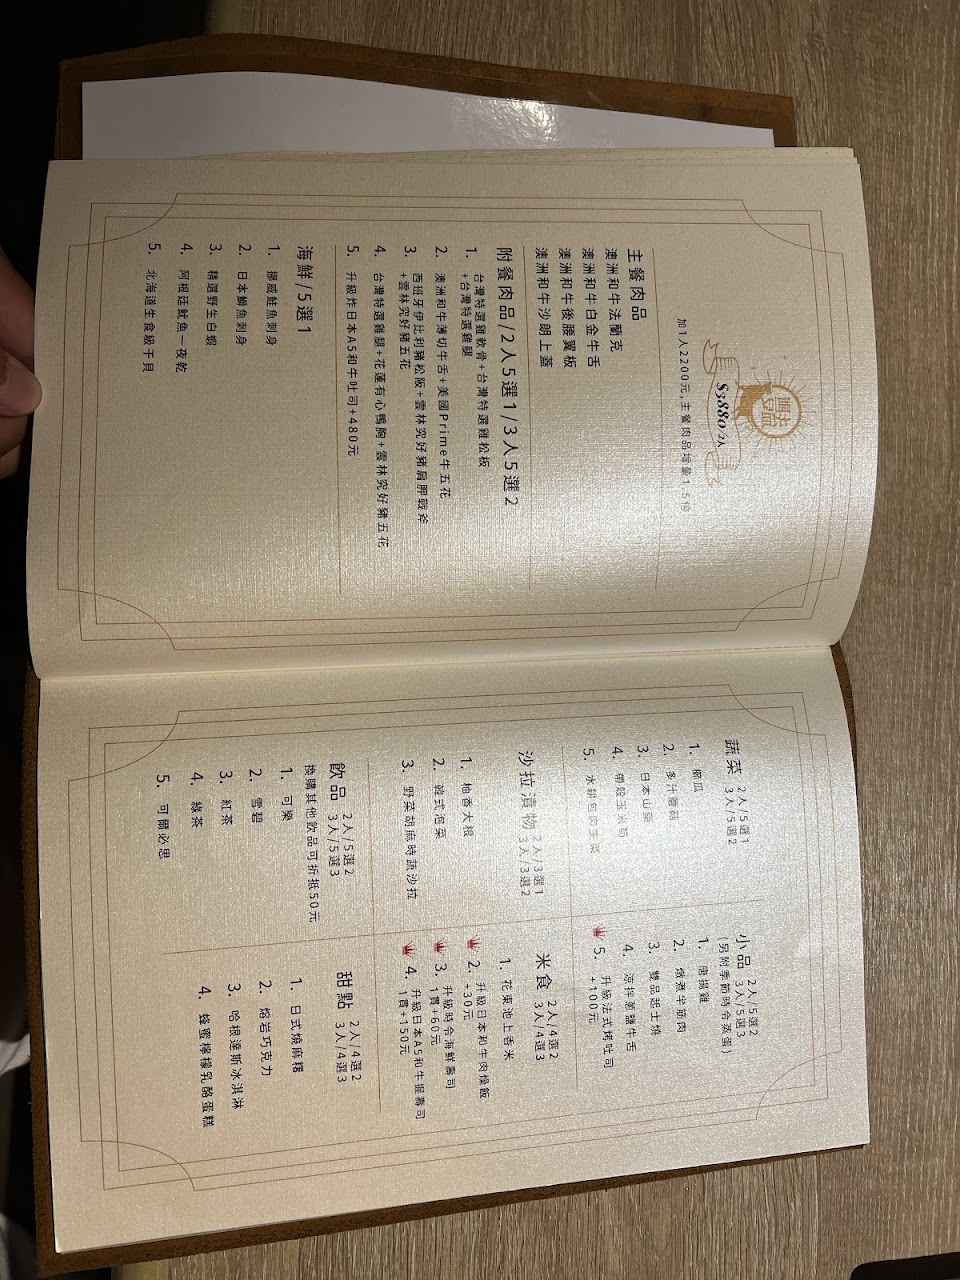 $3,880/2人
加1人2200元,主餐肉品增量1.5倍
主餐肉品
澳洲和牛法蘭克
澳洲和牛白金牛舌
澳洲和牛後腰翼板
澳洲和牛沙朗上蓋
附餐肉品/2人5選1/3人5選2
1. 台灣特選雞軟骨+台灣特選雞松板
+台灣特選雞腿
2. 澳洲和牛薄切牛舌+美國Prime牛五花
3. 西班牙伊比利豬松阪+雲林究好豬肩胛戰斧
+雲林究好豬五花
4. 台灣特選雞腿+花蓮有心鴨胸+雲林究好豬五花
5. 升級炸日本A5和牛吐司+480元
海鮮/5選1
1. 挪威鮭魚刺身
2. 日本鰤魚刺身
3. 精選野生白蝦
4. 阿根廷魷魚一夜乾
5. 北海道生食級干貝
蔬菜 2人/5選1
3人/5選2
1. 櫛瓜
2. 多汁蘑菇
3. 日本山藥
4. 帶殼玉米筍
5. 水耕包肉生菜
小品 2人/5選2
3人/5選3
(另附季節時令蒸蛋)
1. 唐揚雞
2. 燉煮半筋肉
3. 雙品起士燒
4. 涼拌蔥鹽牛舌
5. 升級法式烤吐司
+100元
沙拉漬物 2人/3選1
3人/3選2
1. 柚香大根
2. 韓式泡菜
3. 野菜胡麻時蔬沙拉
米食 2人/4選2
3人/4選3
1. 花東池上香米
2. 升級日本和牛肉燥飯
+30元
3. 升級時令海鮮壽司
1貫+60元
4. 升級日本A5和牛握壽司
1貫+150元
飲品 2人/5選2
3人/5選3
換購其他飲品可折抵50元
1. 可樂
2. 雪碧
3. 紅茶
4. 綠茶
5. 可爾必思
甜點 2人/4選2
3人/4選3
1. 日式燒麻糬
2. 熔岩巧克力
3. 哈根達斯冰淇淋
4. 蜂蜜檸檬乳酪蛋糕